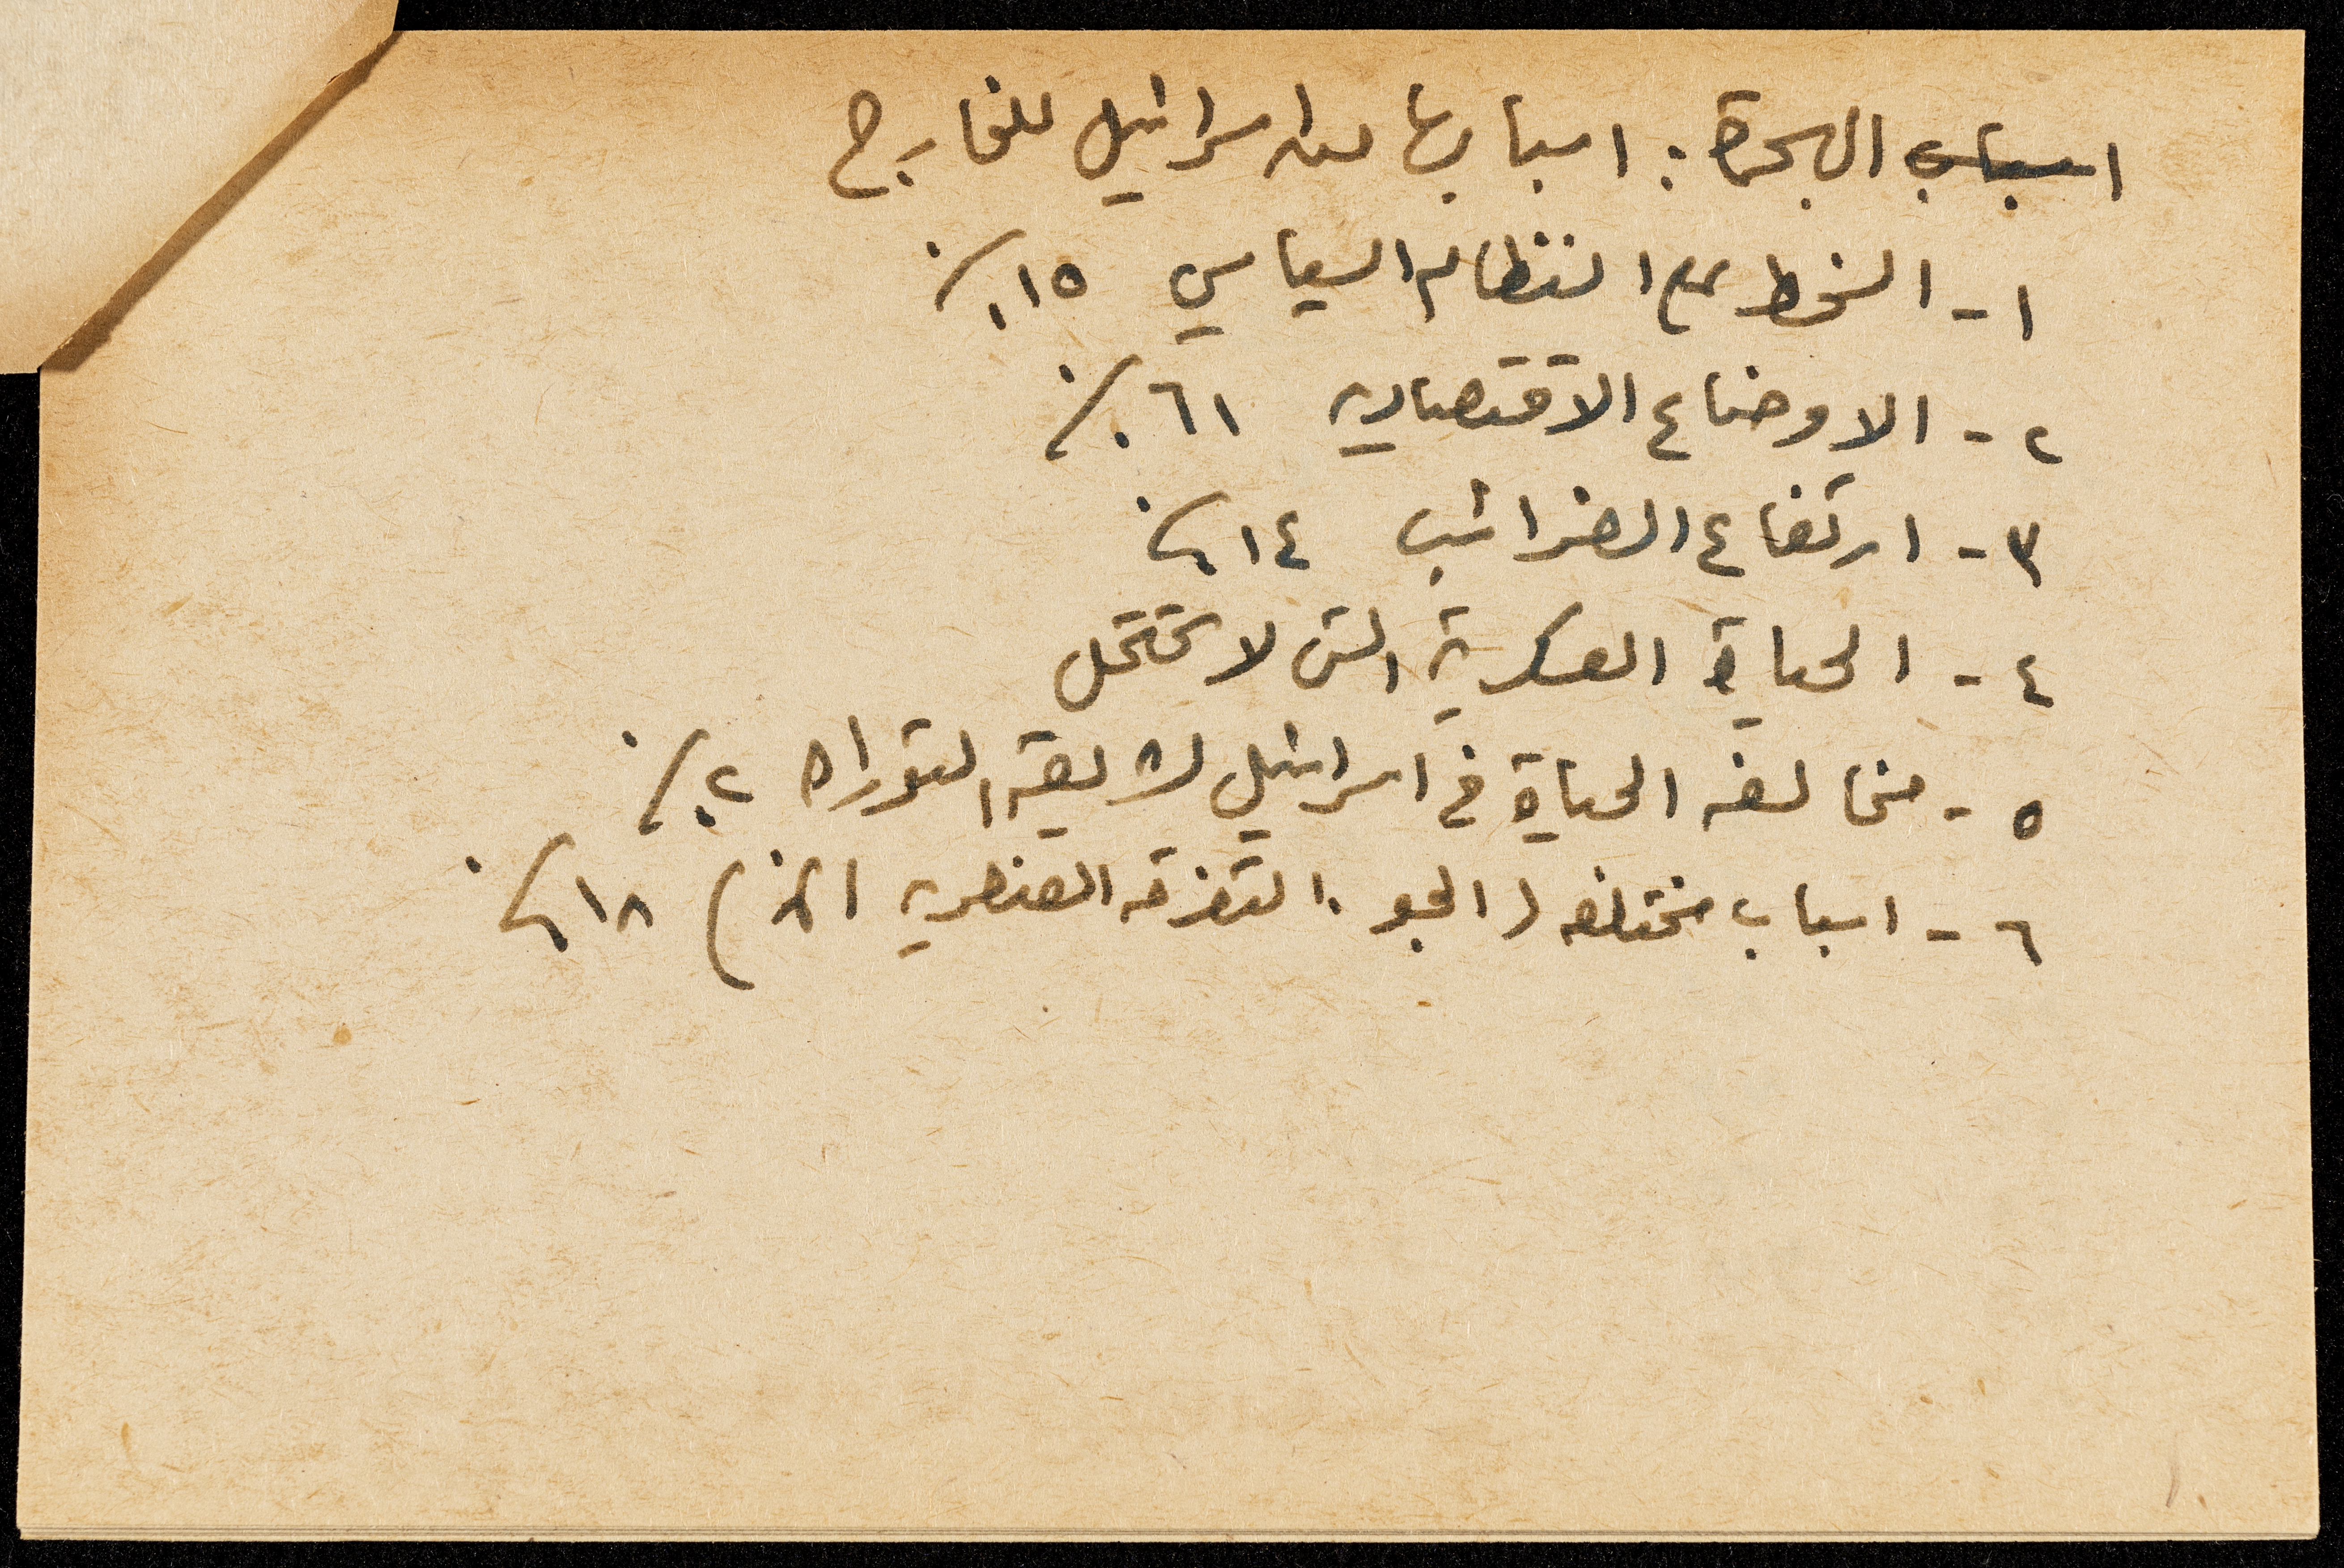 اسباب الهجرة : اسبابها من اسرائيل للخارج
١ - السخط على النظام السياسي ١٥٪
٢ - الاوضاع الاقتصاديه ٦١٪
٣ - ارتفاع الضرائب ١٤٪
٤ - الحياة العسكرية التي لا تحتمل
٥ - مخالفه الحياة في اسرائيل لشريعة التوراه ٢٪
٦ - اسباب مختلفه ( الجو . التفرقه العنصريه الخ ) ١٨٪